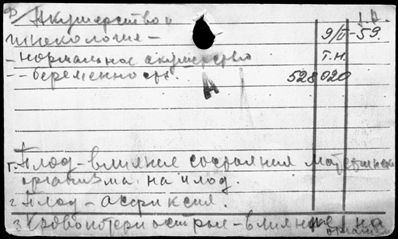 Акушерство и
гинекология —
9/V-59.
— нормальное акушерство
т.н.
— беременность.
528020
А
1. Плод — влияние состояния материнск
организма на плод.
2. Плод — асфиксия.
3. Кровопотери острые — влияние на